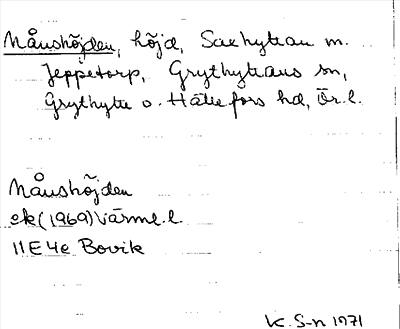 Månshöjden, höjd, Saxhyttan m.
Jeppetorp, Grythyttans sn,
Grythytte o. Hällefors hd, Ör. l.
Månshöjden
ek (1969) Värml. l.
11E 4e Bovik
K. S-n 1971